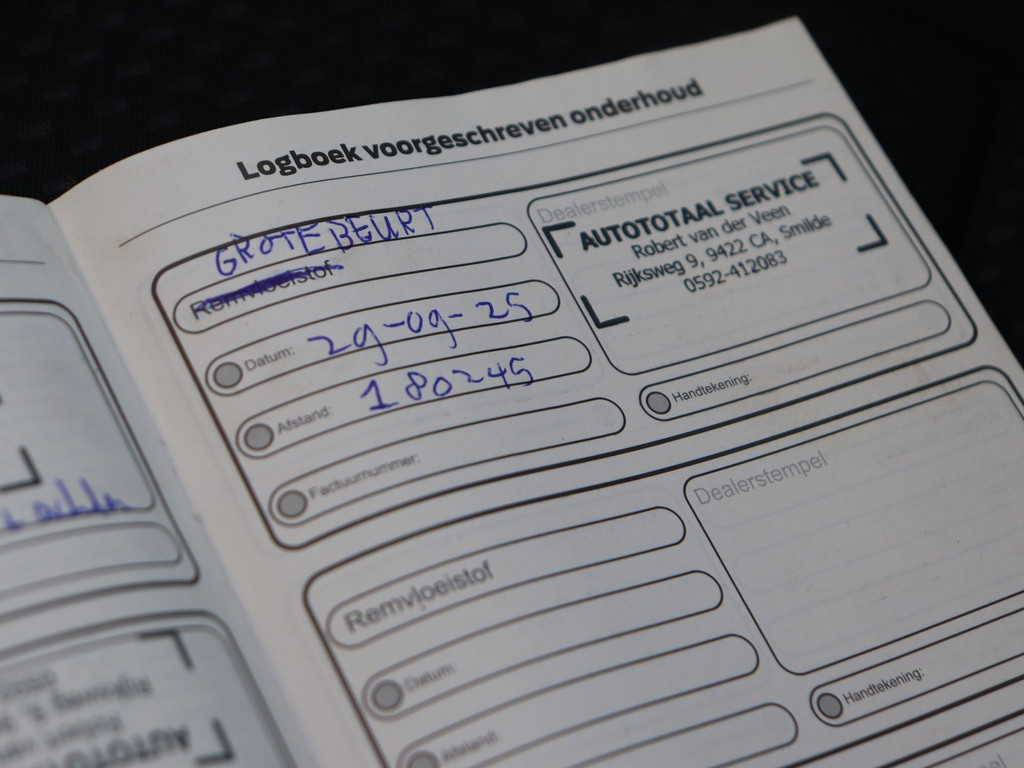 Logboek voorgeschreven onderhoud
GROTE BEURT
Remvloeistof
Datum: 29-09-25
Afstand: 180245
Factuurnummer:
Dealerstempel
AUTOTOTAAL SERVICE
Robert van der Veen
Rijksweg 9, 9422 CA, Smilde
0592-412083
Handtekening:
Remvloeistof
Datum:
Afstand:
Dealerstempel
Handtekening: